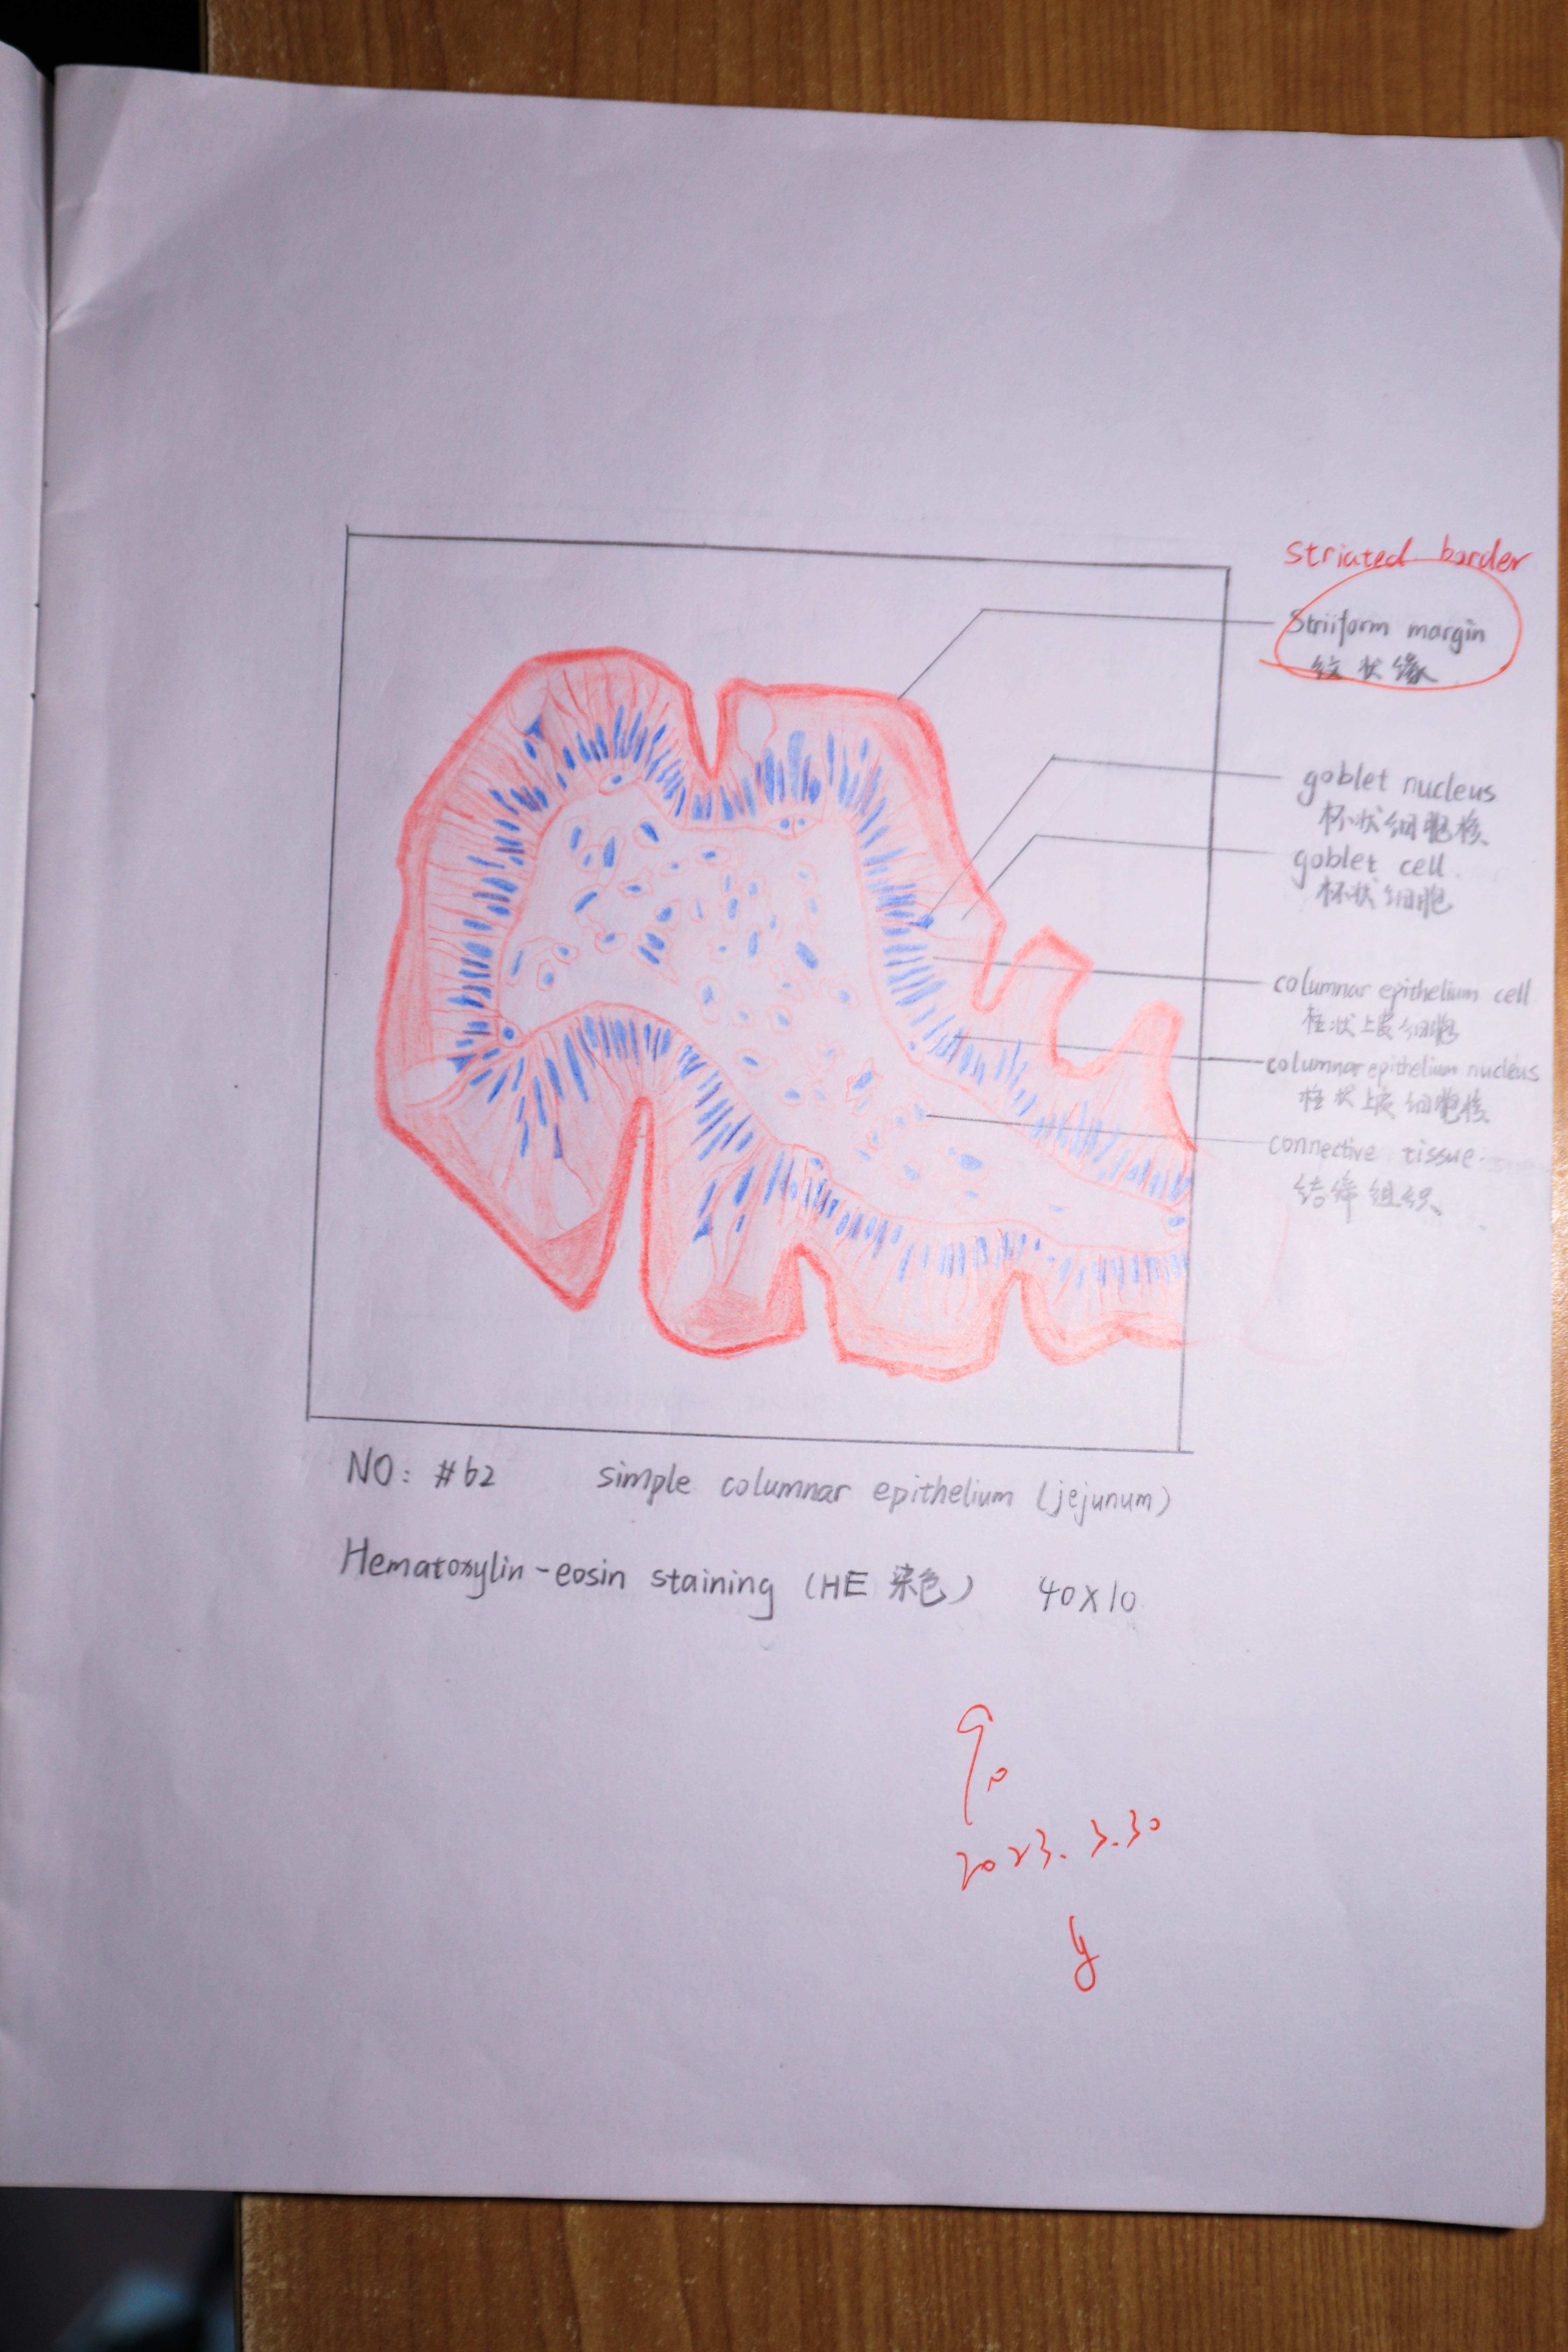 striated border
Striiform margin
纹状缘
goblet nucleus
杯状细胞核
goblet cell.
杯状细胞
columnar epithelium cell
柱状上皮细胞
columnar epithelium nucleus
柱状上皮细胞核
connective tissue.
结缔组织
NO: #62 simple columnar epithelium (jejunum)
Hematoxylin-eosin staining (HE 染色) 40X10
2023.3.30